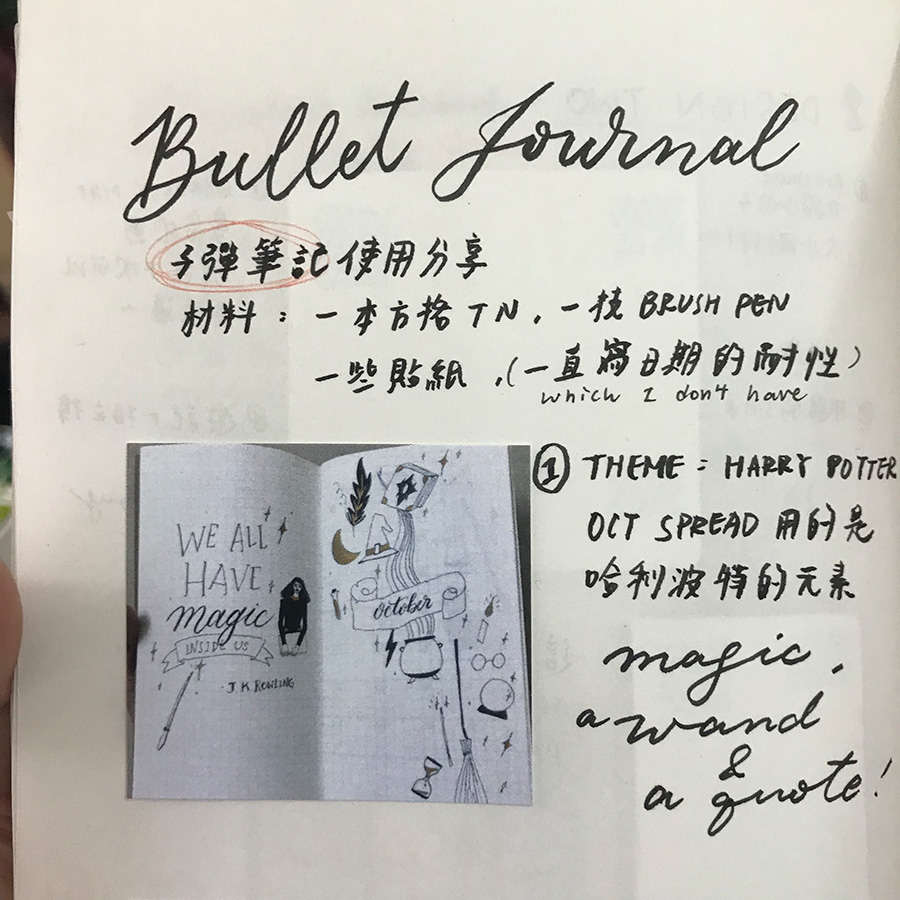 Bullet Journal
子彈筆記使用分享
材料：一本方格TN，一枝 BRUSH PEN
一些貼紙，(一直寫日期的耐性)
which I don't have
① THEME : HARRY POTTER
OCT SPREAD 用的是
哈利波特的元素
magic,
a wand
&
a quote!
WE ALL
HAVE
magic
INSIDE US
· J.K. ROWLING
october